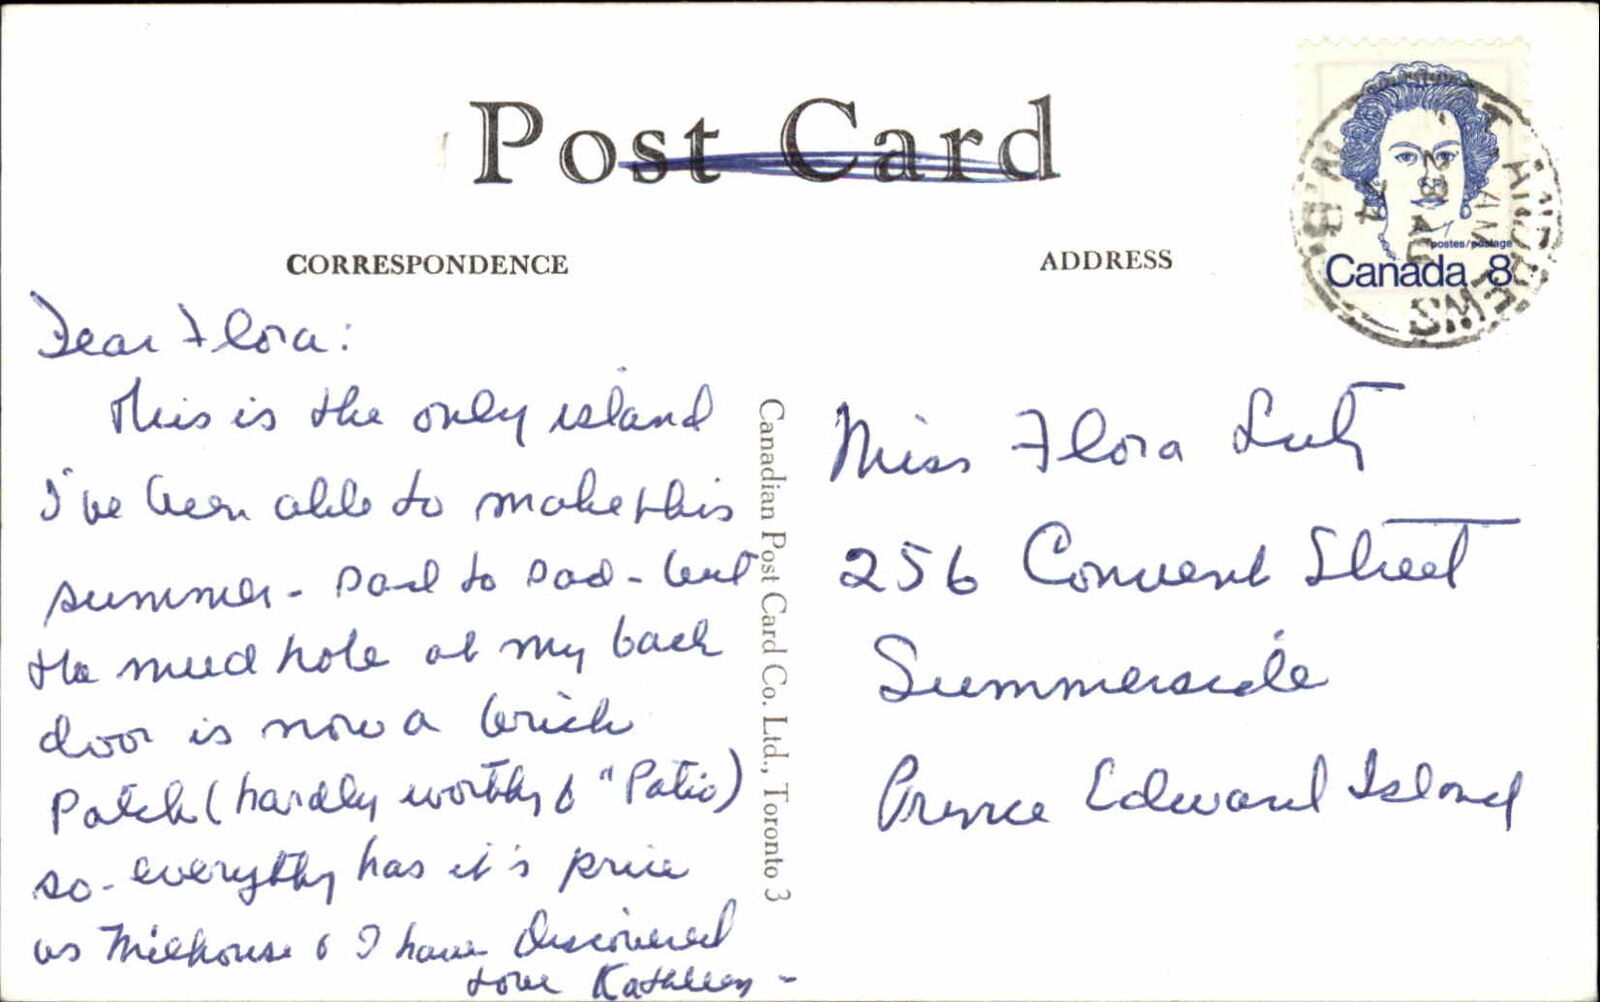 Post Card
CORRESPONDENCE
ADDRESS
postes/postage
Canada 8
ST ANDREWS
AM
28 AU
74
N.B.
Dear Flora:
This is the only island
I've been able to make this
summer - sad to sad - but
the mud hole at my back
door is now a brick
patch (hardly worthy of "Patio)
so - everything has it's price
as Milhouse & I have discovered
Love Kathleen -
Canadian Post Card Co. Ltd., Toronto 3
Miss Flora
256 Convent Street
Summerside
Prince Edward Island